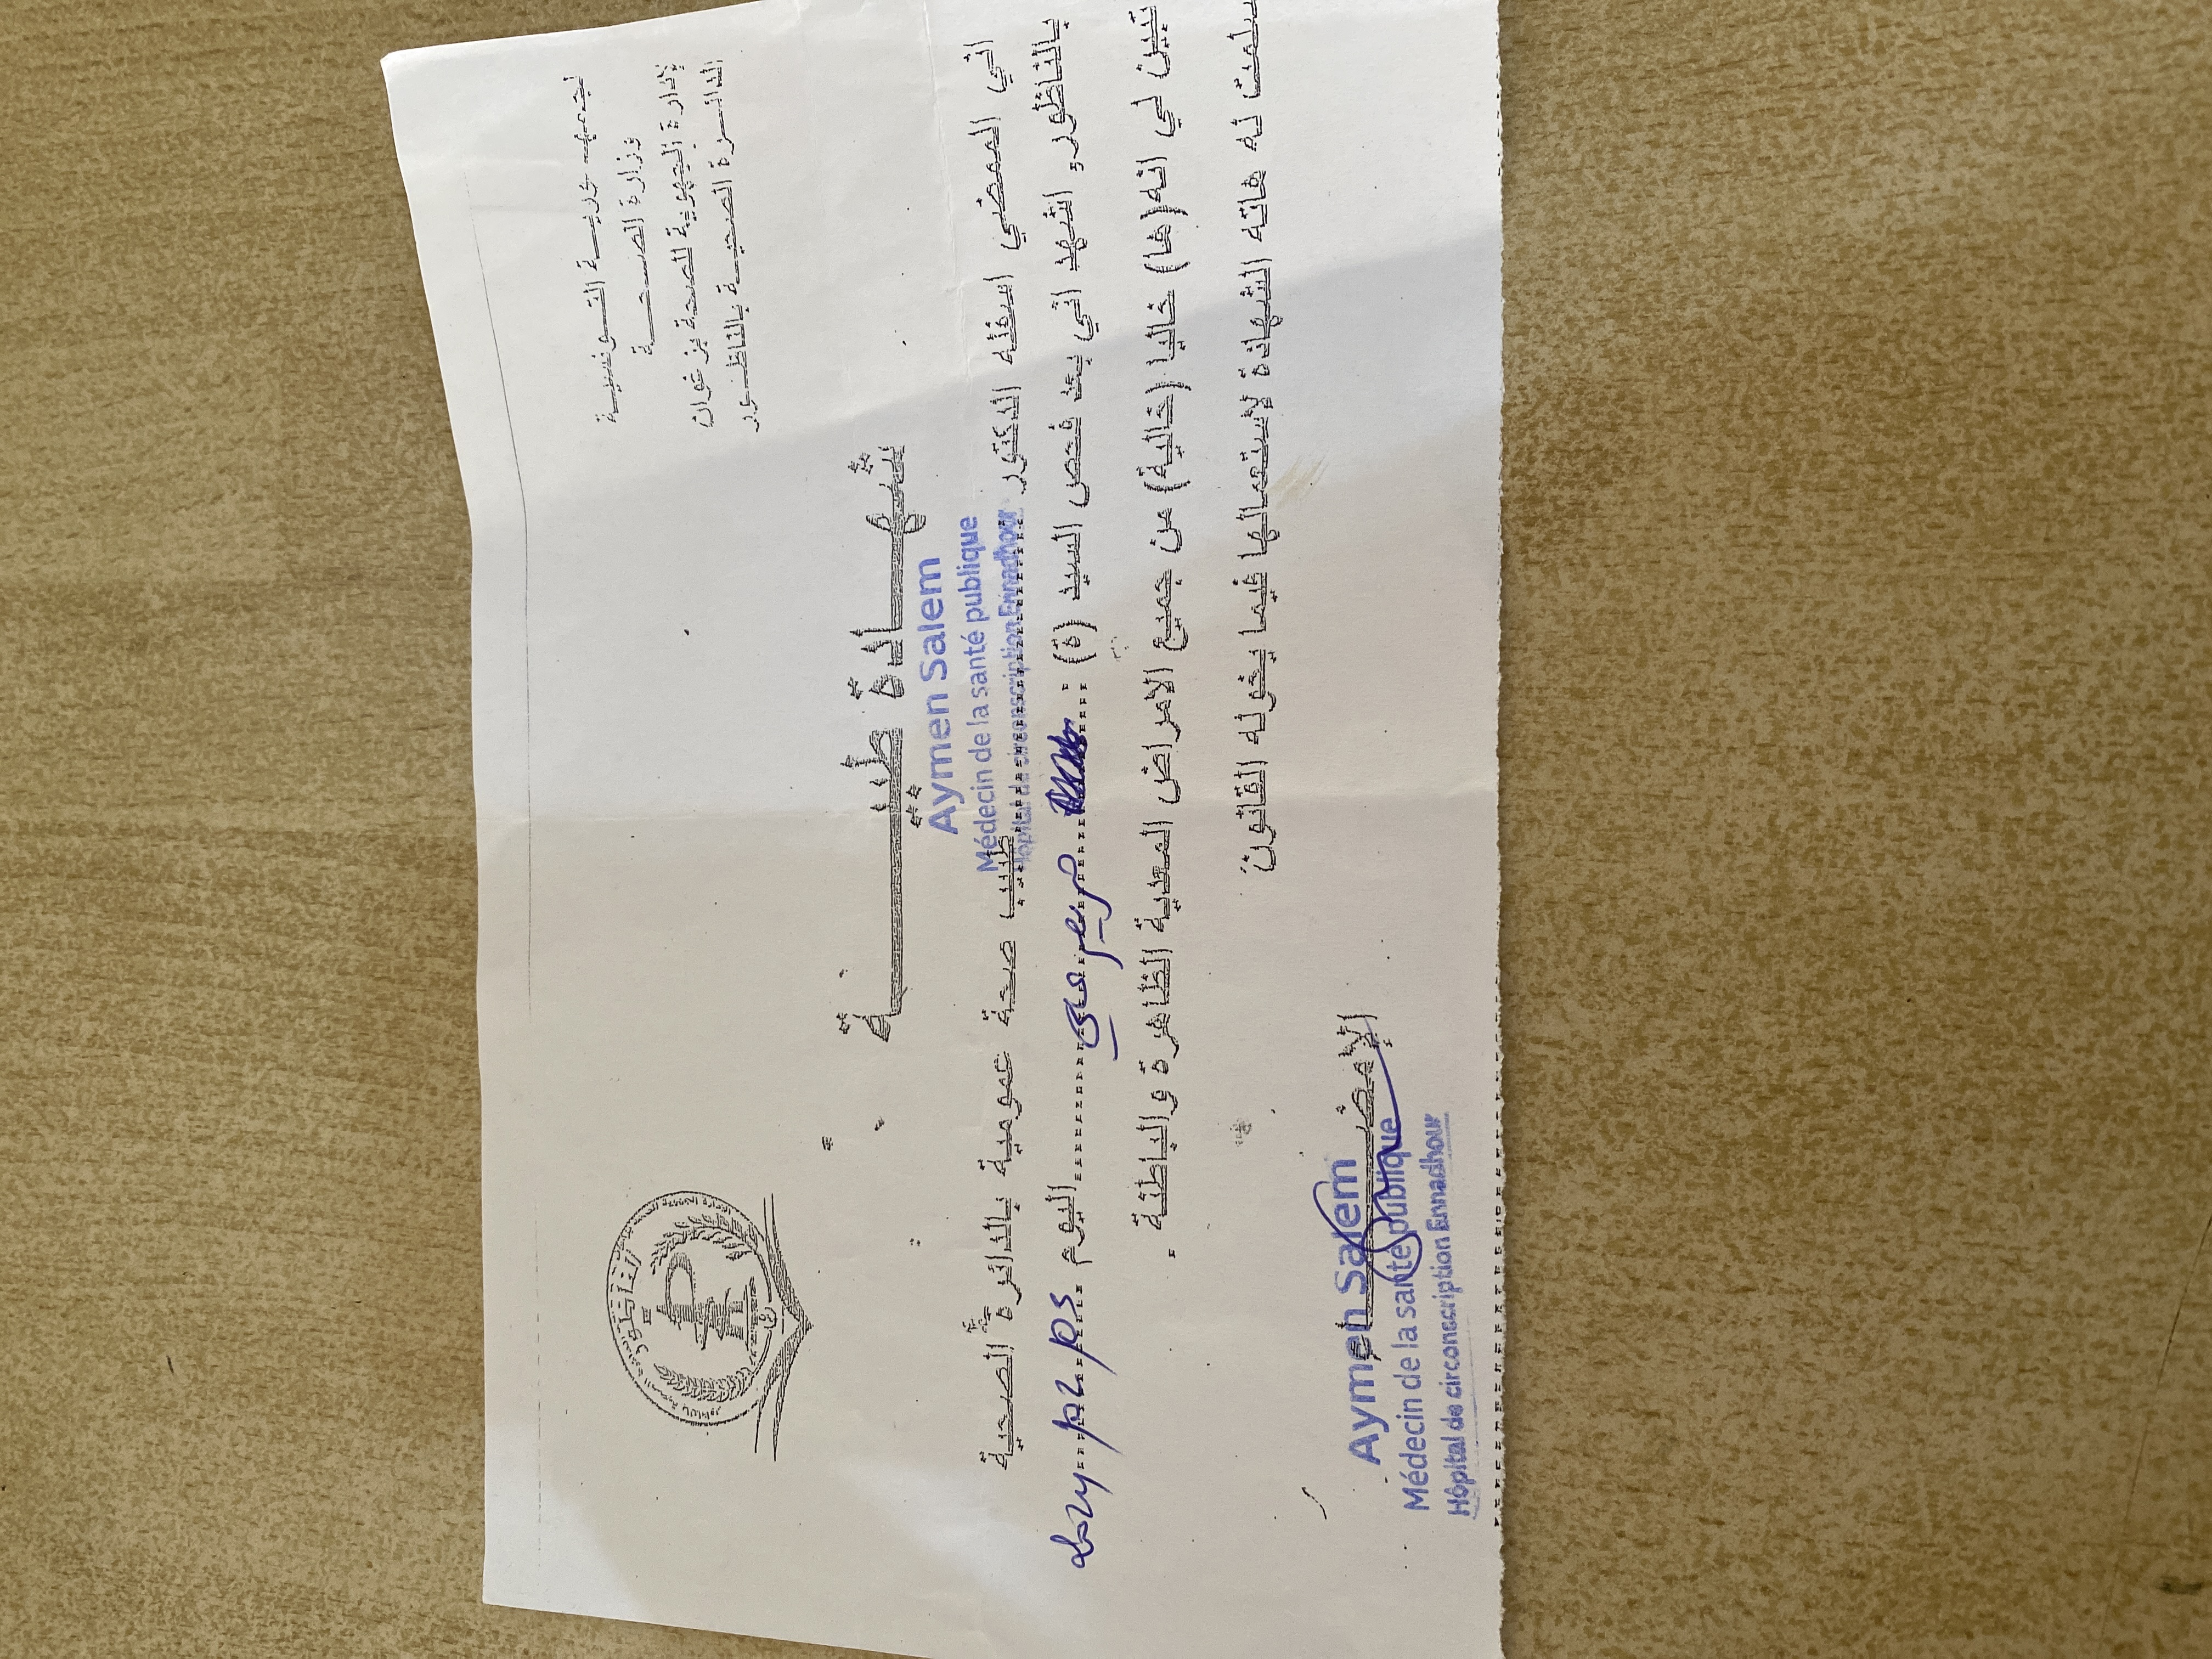 الجمهورية التونسية
وزارة الصحة
الإدارة الجهوية للصحة بزغوان
الدائرة الصحية بالناظور
شهادة طبية
Aymen Salem
Médecin de la santé publique
Hôpital de circonscription Ennadhour
اني الممضي اسفله الدكتور طبيب صحة عمومية بالدائرة الصحية
بالناظور, اشهد اني بعد فحص السيد (ة) : مريم اليوم
تبين لي انه(ها) خاليا (خالية) من جميع الامراض المعدية الظاهرة والباطنة .
سلمت له هاته الشهادة لإستعمالها فيما يخوله القانون
الإمضاء
Aymen Salem
Médecin de la santé publique
Hôpital de circonscription Ennadhour